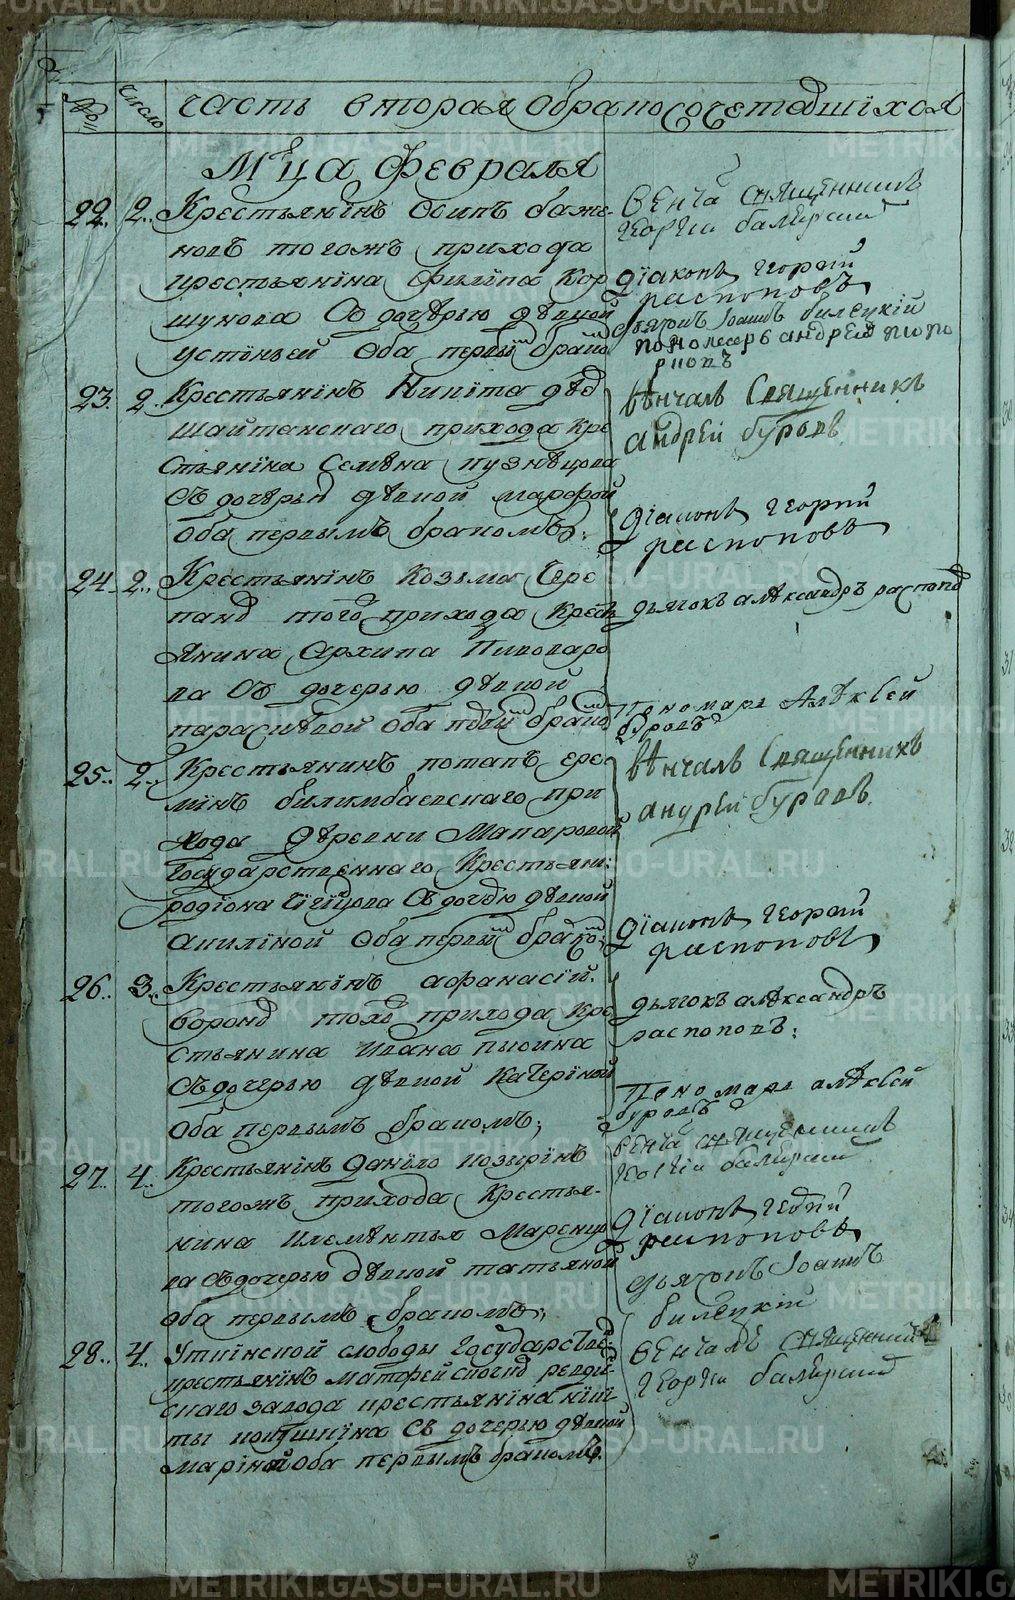 №
число
часть вторая о бракосочетавшихся
Мца февраля
22. 2. Крестьянинъ Осипъ баже
новъ тогожъ прихода
крестьянина филипа Кор
шунова Съ дочерью девкой
устиньей Оба первым браком
венча священникъ
георгий
дiаконъ георгий
распоповъ
Iоаннъ билецкiй
пономарь андрей
23. 2. Крестьянинъ Никита
Шайтанскаго прихода кре
стьянина Семена кузнецова
Съ дочерью девкой марфой
Оба первымъ бракомъ;
вѣнчалъ Священникъ
андрей буровъ
дiаконъ георгий
распоповъ
24. 2. Крестьянинъ Козьма Чере
панов того прихода Крест
янина Архипа Пивоваро
ва Съ дочерью девкой
параскевой Оба первым браком
дьячокъ алѣксандръ распопов
Пономарь Алѣксѣй
буровъ
25. 2. Крестьянинъ потапъ ере
минъ билимбаевскаго при
хода деревни Макаровой
Государственнаго Крестьяни:
родiона Съ дочерью девкой
акилiной Оба первым браком;
вѣнчалъ Священникъ
андрей буровъ.
дiаконъ георгий
распоповъ
26. 3. Крестьянинъ афанасiй
воронов того прихода Кре
стьянина ивана
Съ дочерью девкой катериной
Оба первымъ бракомъ;
дьячокъ алѣксандръ
распоповъ:
Пономарь алѣксѣй
буровъ
27. 4. Крестьянинъ данило козыринъ
тогожъ прихода Крестья-
нина клементья Маренко
ва Съ дочерью девкой татьяной
Оба первымъ бракомъ;
венча священникъ
георгий
дiаконъ георгий
распоповъ
дьячокъ Iоаннъ
билецкiй
28. 4. Уткинской слободы Государстве:
крестьянинъ матфей ревди
скаго завода крестьянина ники
ты Съ дочерью девкой
мариной Оба первымъ бракомъ.
венчалъ священникъ
георгий
METRIKI.GASO-URAL.RU